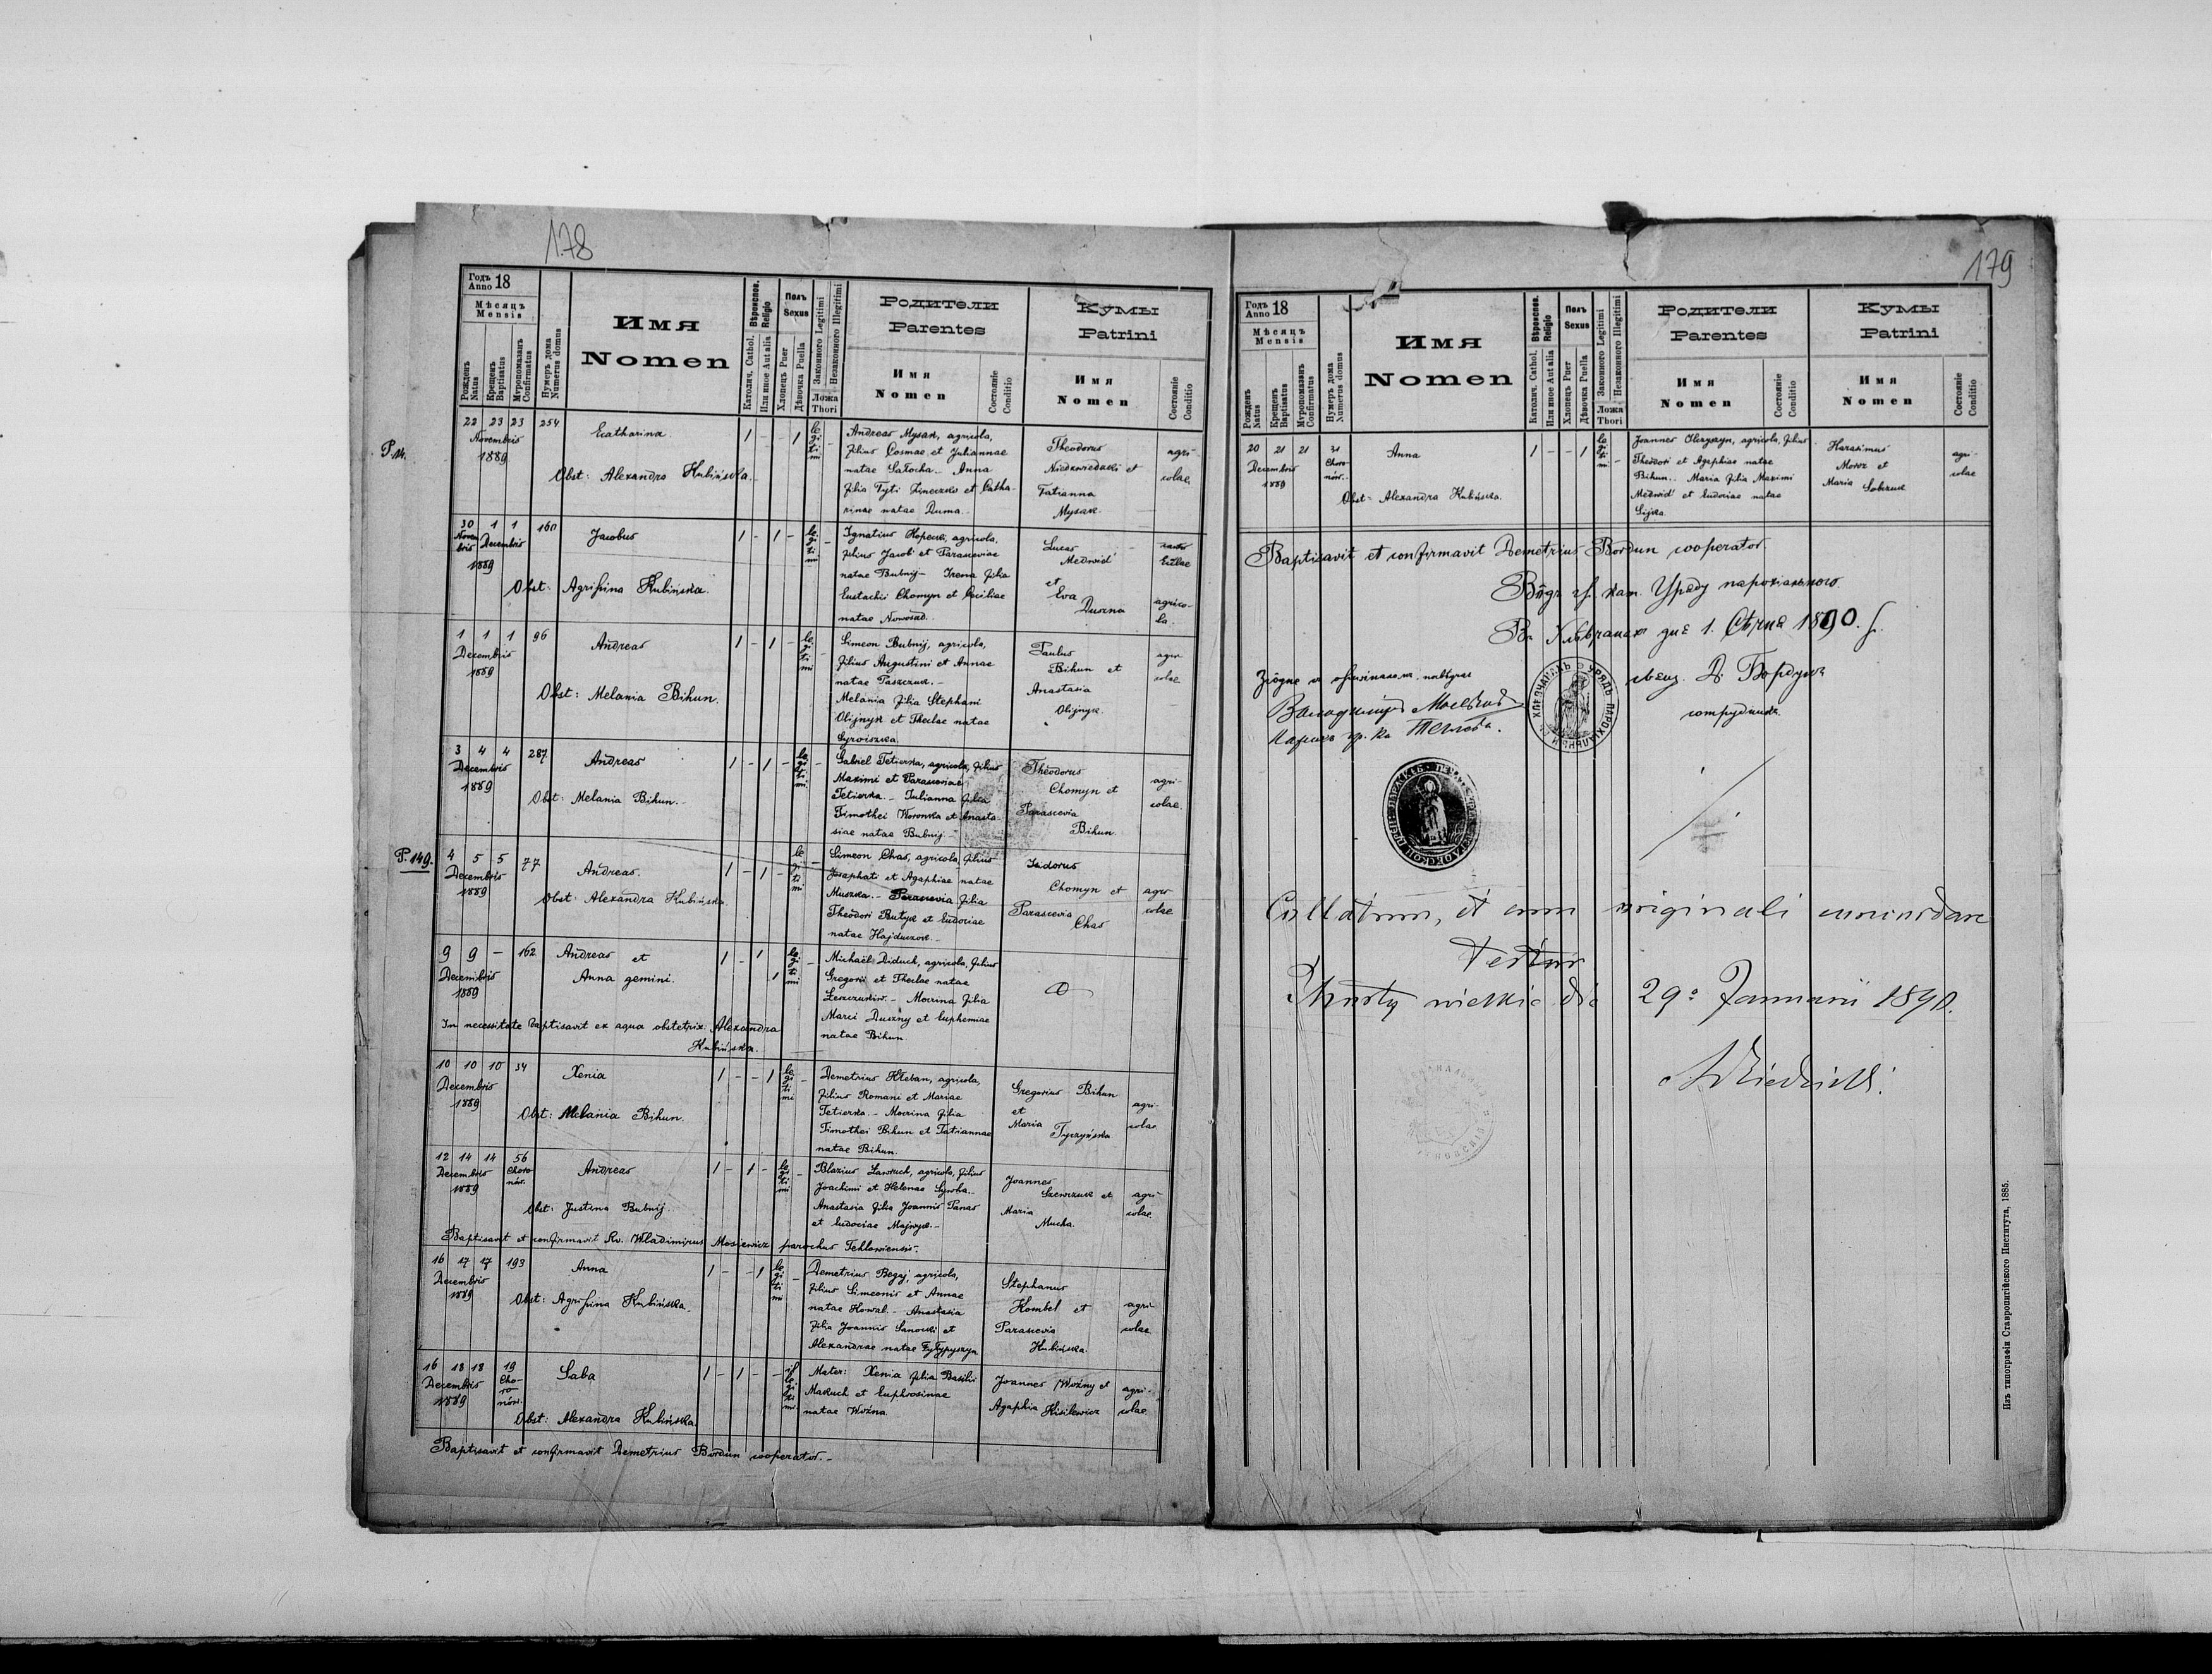 178
Годъ 18
Anno
Мѣсяцъ
Mensis
Рожденъ Natus
Крещенъ Baptisatus
Мѵропомазанъ Confirmatus
Нумеръ дома Numerus domus
Имя
Nomen
Вѣроиспов. Religio
Католич. Cathol.
Или иное Aut alia
Полъ Sexus
Хлопецъ Puer
Дѣвочка Puella
Законного Legitimi
Незаконного Illegitimi
Ложа Thori
Родители
Parentes
Имя Nomen
Состояніе Conditio
Кумы
Patrini
Имя Nomen
Состояніе Conditio
22 23 23 254 Ecatharina 1 - - 1 legitimi - Andreas Mysak, agricola, Theodorus agri-
Novembris filius Cosmae et Juliannae Niedzwiedzki et colae
1889 natae Sałocha. - Anna Tatianna
Obst: Alexandra Kubińska filia Tyti Zineczko et Catha- Mysak
rinae natae Duma.
30 1 1 160 Jacobus 1 - 1 - legitimi - Ignatius Kopeck, agricola, Lucas
Novembris Decembris filius Jacobi et Parasceviae Medwid
1889 natae Bubnij - Irena filia et
Obst: Agrifina Kubińska. Eustachii Chomyn et Ceciliae Eva agrico-
natae Nowosad. Duzna la.
1 1 1 96 Andreas 1 - 1 - legitimi - Simeon Bubnij, agricola, Paulus agri-
Decembris filius Augustini et Annae Bihun et colae
1889 natae Paszczuk. - Anastasia
Obst: Melania Bihun. Melania filia Stephani Olijnyk.
Olijnyk et Theclae natae
Syroiszka.
3 4 4 287 Andreas 1 - 1 - legitimi - Gabriel Tetierka, agricola, filius Theodorus
Decembris Maximi et Parasceviae Chomyn et agri-
1889 Tetierka. - Julianna filia Parascevia colae.
Obst: Melania Bihun. Timothei Woronka et Anasta- Bihun.
siae natae Bubnij. -
P. 149.
4 5 5 77 Andreas. 1 - 1 - legitimi - Simeon Chas, agricola, filius Isidorus
Decembris Josaphati et Agaphiae natae Chomyn et agri-
1889 Muszka. - Parascevia filia Parascevia colae
Obst: Alexandra Kubińska Theodori Butyk et Eudociae Chas
natae Hajduczok. -
9 9 - 162 Andreas et 1 - 1 legitimi - Michaël Diduch, agricola, filius
Decembris Anna gemini. 1 Gregorii et Theclae natae
1889 Leszczukiw. - Mocrina filia
In necessitate baptisavit ex aqua obstetrix Alexandra Marci Duzny et Euphemiae
Kubińska. natae Bihun.
10 10 10 34 Xenia 1 - - 1 legitimi - Demetrius Kłeban, agricola,
Decembris filius Romani et Mariae Gregorius Bihun
1889 Tetierka. - Mocrina filia et agri-
Obst: Melania Bihun. Timothei Bihun et Tatiannae Maria colae.
natae Bihun. Tyczyńska
12 14 14 56 Choro- Andreas 1 - 1 - legitimi - Blazius Ławruch, agricola, filius Joannes
Decembris nów. Joachimi et Helenae Syroha. Szewczuk et agri-
1889 Anastasia filia Joannis Panas Maria colae.
Obst: Justina Bubnij. et Eudociae Majnyk. - Mucha.
Baptisavit et confirmavit Rv. Wladimirus Mosiewicz parochus Tehlowiensis. -
16 17 17 193 Anna 1 - - 1 legitimi - Demetrius Begaj, agricola, Stephanus
Decembris filius Simeonis et Annae Kombel et agri-
1889 natae Kowal. - Anastasia Parascevia colae
Obst: Agrifina Kubińska. filia Joannis Sanocki et Kubińska.
Alexandrae natae
16 18 18 19 Cho-ro-nów. Saba 1 - 1 - - illegitimi Mater: Xenia filia Basilii Joannes Woźny et agri-
Decembris Makuch et Euphrosinae Agaphia Kisilewicz colae.
1889 natae Woźna.
Obst: Alexandra Kubińska.
Baptisavit et confirmavit Demetrius Bordun cooperator. -
179
Годъ 18
Anno
Мѣсяцъ
Mensis
Рожденъ Natus
Крещенъ Baptisatus
Мѵропомазанъ Confirmatus
Нумеръ дома Numerus domus
Имя
Nomen
Вѣроиспов. Religio
Католич. Cathol.
Или иное Aut alia
Полъ Sexus
Хлопецъ Puer
Дѣвочка Puella
Законного Legitimi
Незаконного Illegitimi
Ложа Thori
Родители
Parentes
Имя Nomen
Состояніе Conditio
Кумы
Patrini
Имя Nomen
Состояніе Conditio
20 21 21 31 Anna 1 - - 1 legitimi - Joannes agricola, filius Harasimus
Decembris Choro- Theodori et Agaphiae natae Moroz et agri-
1889 nów. Bihun. Maria filia Maximi Maria Sobczuk colae
Obst: Alexandra Kubińska. Medwid et Eudociae natae
Sijka.
Baptisavit et confirmavit Demetrius Bordun cooperator.
Вôдъ гр. кат. Уряду парохіального
дня 1. Сѣчня 1890.
Д. Бордунъ
сотрудникъ
Collatum, et cum originali concordare
testor
Mosty wielkie die 29a Januarii 1890.
Изъ типографіи Ставропигійского Института, 1885.